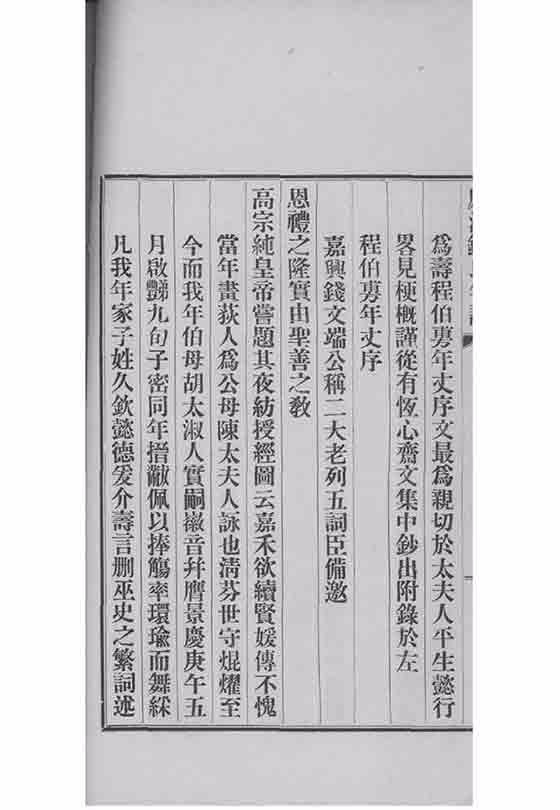 為壽程伯旉年丈序文最為親切於太夫人平生懿行
畧見梗概謹從有恆心齋文集中鈔出附錄於左
程伯旉年丈序
嘉興錢文端公稱二大老列五詞臣備邀
恩禮之隆實由聖善之教
高宗純皇帝嘗題其夜紡授經圖云嘉禾欲續賢媛傳不愧
當年畫荻人為公母陳太夫人詠也清芬世守焜燿至
今而我年伯母胡太淑人實嗣徽音幷膺景慶庚午五
月啟豔九旬子密同年搢黻佩以捧觴率環瑜而舞綵
凡我年家子姓久欽懿德爰介壽言刪巫史之繁詞述